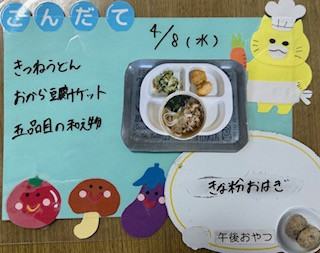 こんだて
4/8(水)
きつねうどん
おから豆腐ナゲット
五品目の和え物
きな粉おはぎ
午後おやつ